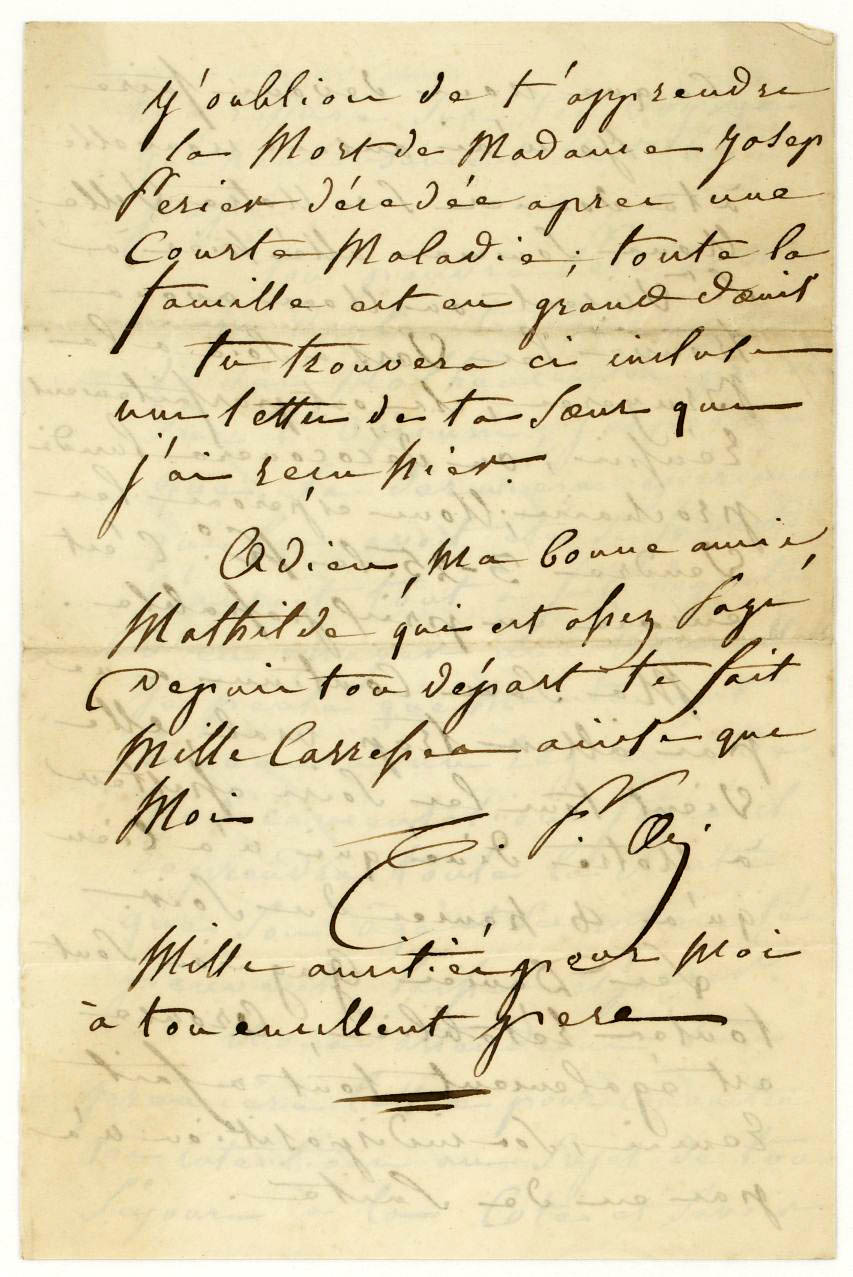 j'oublion de t'apprendre
la Mort de Madame Josep
Perier décédée apres une
Courte Maladie; toute la
famille est en grand deuil
tu trouvera ci incluse
une lettre de ta Sœur que
j'ai reçu hier.
Adieu, Ma bonne amie,
Mathilde qui est assez Sage
Depuis ton départ te fait
Mille Carresses ainsi que
Moi
Mille amitiés pour Moi
à ton excellent pere